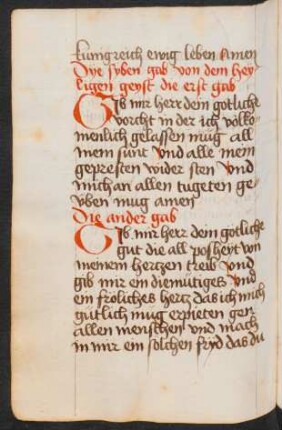 kunigreich ewig leben Amen
Dye syben gab von dem hey
ligen geyst die erst gab
Gib mir herr dein gotliche
vorcht in der ich volko
menlich gelassen mug all
mein sunt vnd alle mein
gepresten wider sten vnd
mich an allen tugeten ge
vben mug amen
Die ander gab
Gib mir herr dein gotliche
gut die all posheyt von
meinem hertzen treib vnd
gib mir ein diemutiges vnd
ein froliches hertz das ich mich
gutlich mug erpieten gen
allen menschen vnd mach
in mir ein solchen fryd das du